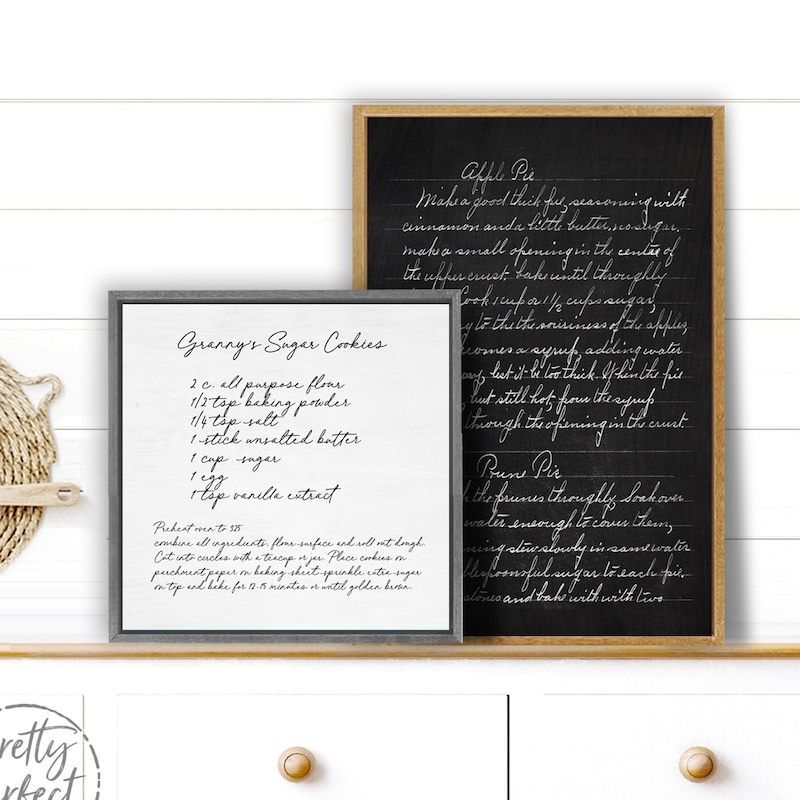 Granny's Sugar Cookies
2 c. all purpose flour
1/2 tsp baking powder
1/4 tsp salt
1 stick unsalted butter
1 cup sugar
1 egg
1 tsp vanilla extract
Preheat oven to 325
combine all ingredients, flour surface and roll out dough.
Cut into circles with a teacup or jar. Place cookies on
parchment paper on baking sheet sprinkle extra sugar
on top and bake for 12-15 minutes or until golden brown.
Apple Pie
Make a good thick pie, seasoning with
cinnamon and a little butter, no sugar.
make a small opening in the center of
the upper crust. bake until throughly
Cook 1 cup or 1 1/2 cups sugar,
to the the souriness of the apples,
comes a syrup, adding water
lest it be too thick. When the pie
but still hot, pour the syrup
through the opening in the crust.
Prune Pie
the prunes throughly, Soak over
water eneough to cover them,
stew slowly in same water
sugar to each pie.
stones and bake with with two
retty
rfect